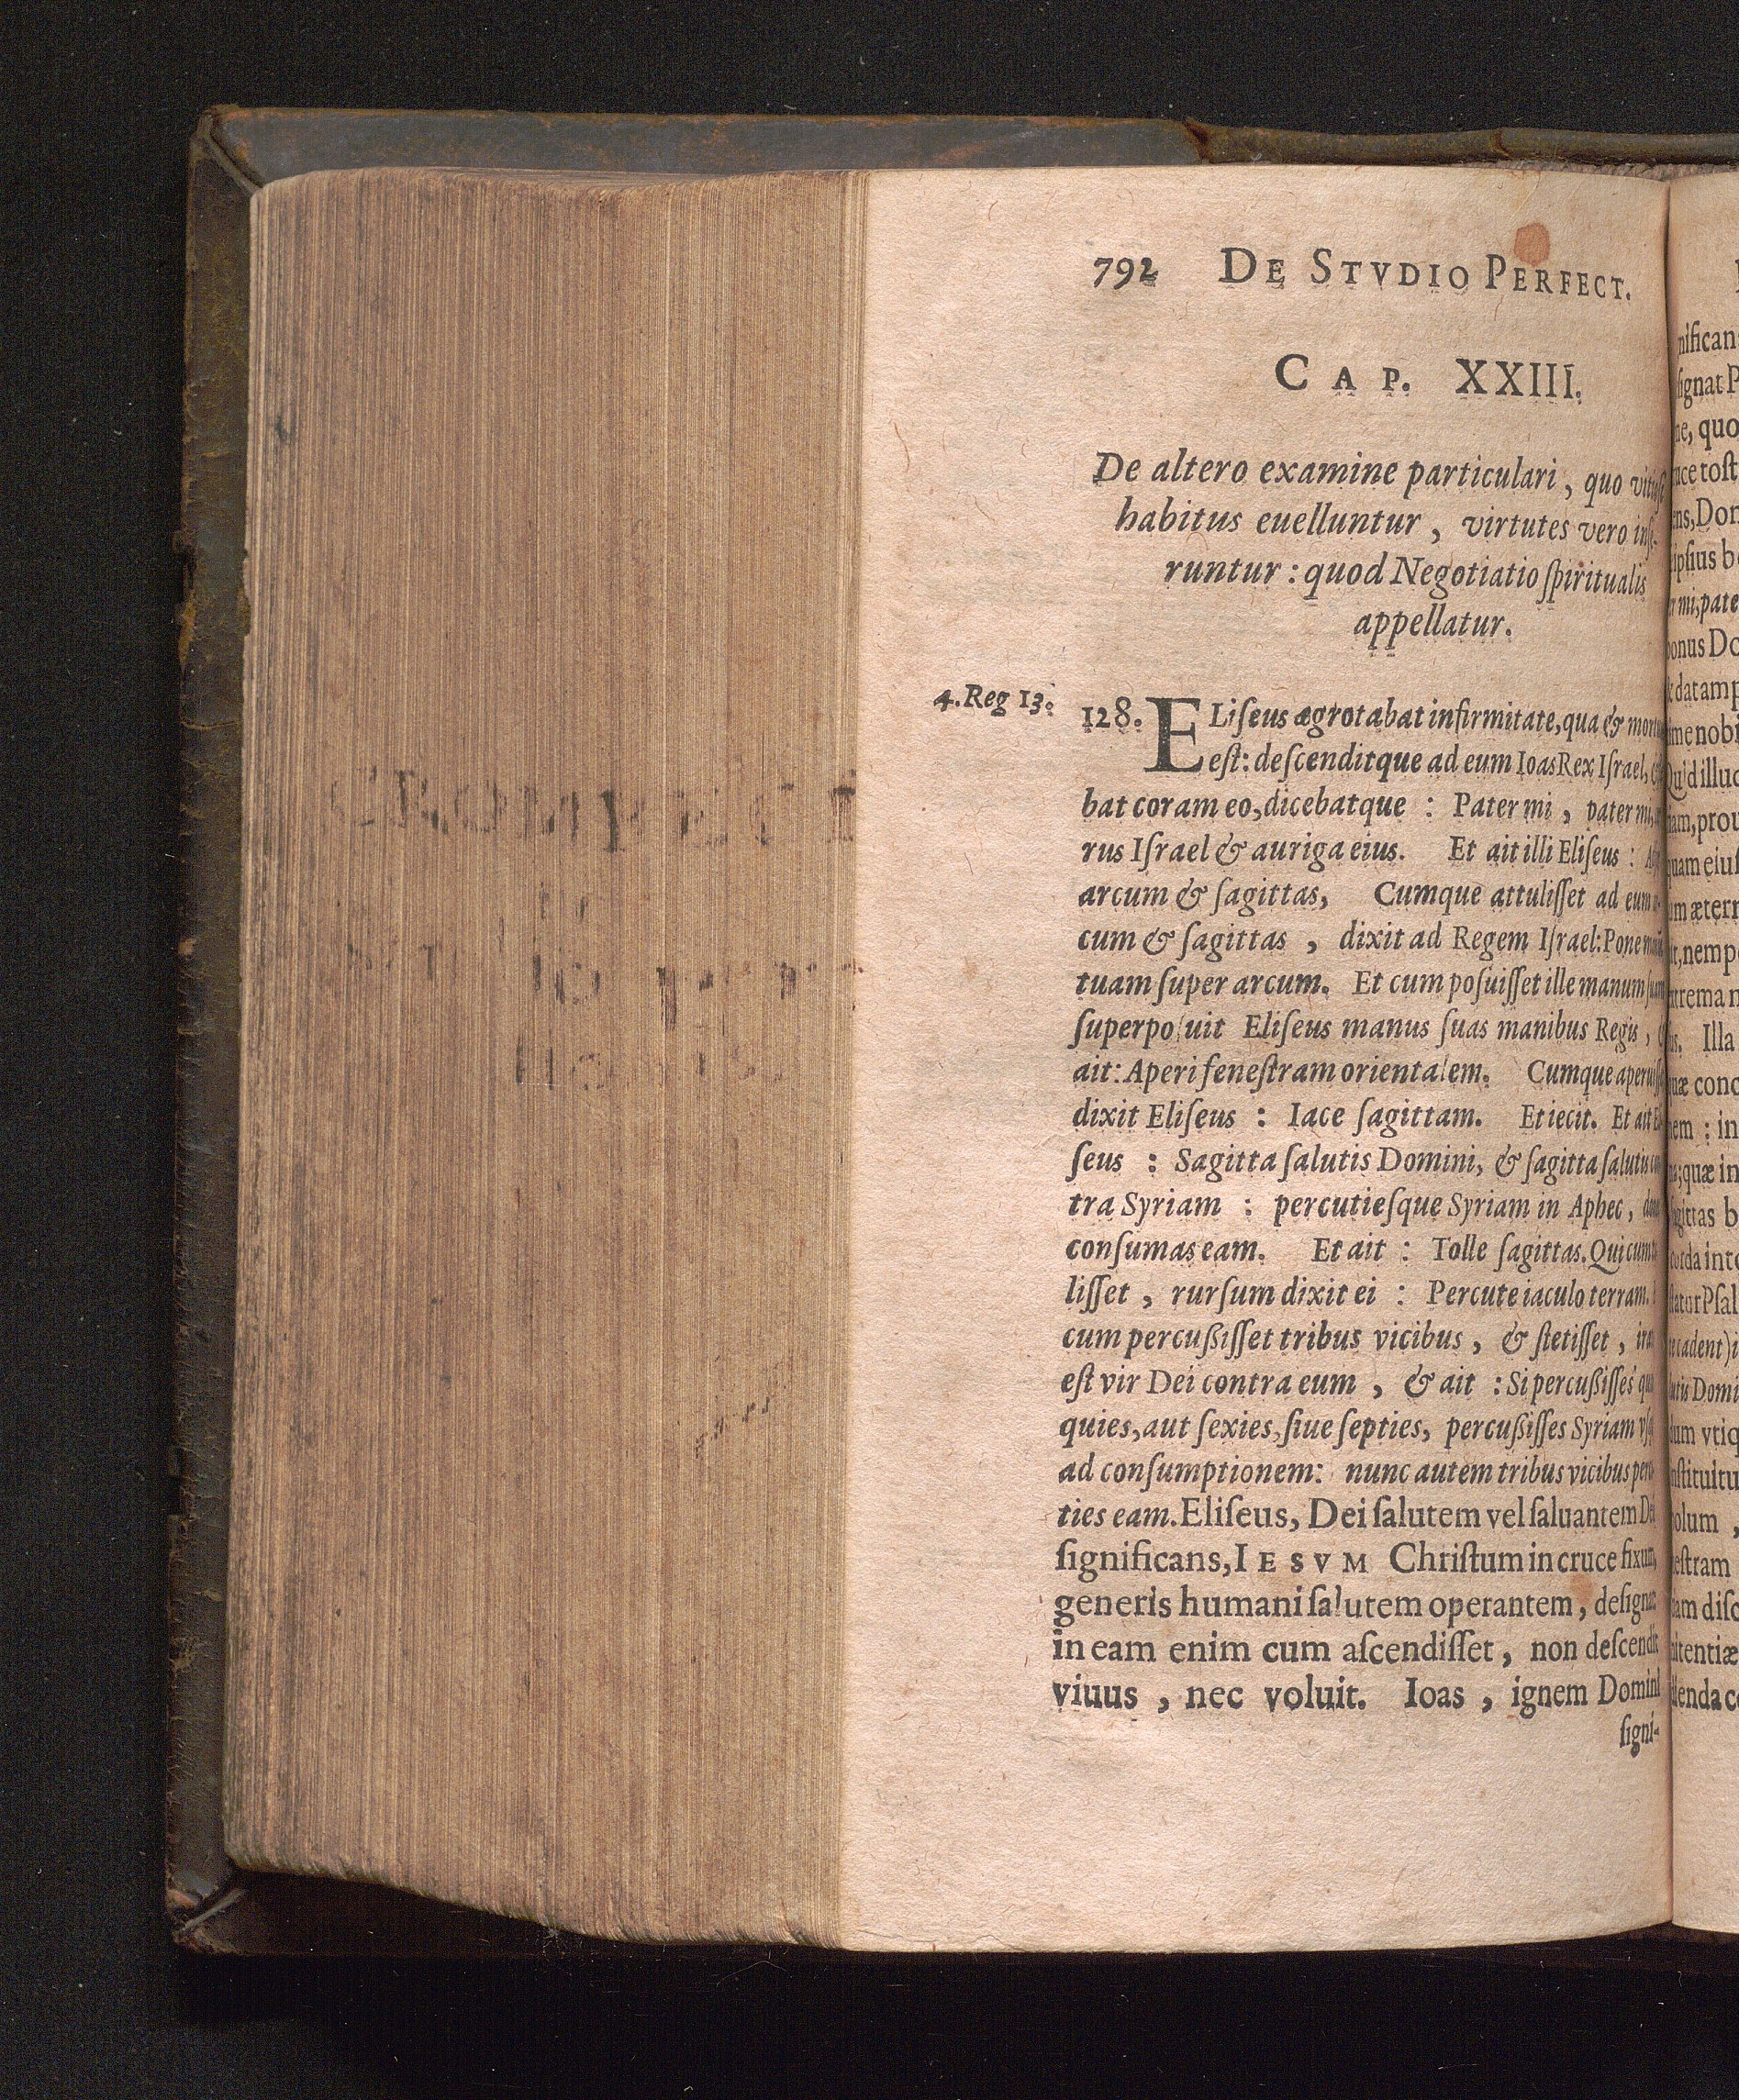 792 DE STVDIO PERFECT.
CAP. XXIII.
De altero examine particulari, quo
habitus euelluntur, virtutes vero inſe-
runtur: quod Negotiatio ſpiritualis
appellatur.
4. Reg 13.
128. ELiſeus ægrotabat infirmitate, qua & mortuus
eſt: deſcenditque ad eum Ioas Rex Iſrael,
bat coram eo, dicebatque : Pater mi, pater mi,
rus Iſrael & auriga eius. Et ait illi Eliſeus :
arcum & ſagittas, Cumque attuliſſet ad eum
cum & ſagittas, dixit ad Regem Iſrael: Pone manū
tuam ſuper arcum. Et cum poſuiſſet ille manum ſuam
ſuperpoſuit Eliſeus manus ſuas manibus Regis,
ait: Aperi feneſtram orientalem. Cumque aperuiſſet
dixit Eliſeus : Iace ſagittam. Et iecit. Et ait
ſeus : Sagitta ſalutis Domini, & ſagitta ſalutis con
tra Syriam : percutieſque Syriam in Aphec, donec
conſumas eam. Et ait : Tolle ſagittas. Qui cum
liſſet, rurſum dixit ei : Percute iaculo terram.
cum percußiſſet tribus vicibus, & ſtetiſſet,
eſt vir Dei contra eum, & ait : Si percußiſſes
quies, aut ſexies, ſiue ſepties, percußiſſes Syriam
ad conſumptionem: nunc autem tribus vicibus percu
ties eam. Eliſeus, Dei ſalutem vel ſaluantem
ſignificans, IESVM Chriſtum in cruce fixum,
generis humani ſalutem operantem, deſignat
in eam enim cum aſcendiſſet, non deſcendit
viuus, nec voluit. Ioas, ignem Domini
ſigni-
nifican
ſignat P
quo
Don
ipſius
mi, pate
Do
datam
nobi
Quid illud
prou
eiuſ
ætern
nemp
Illa
conc
: in
quæ in
ſagittas
corda
Pſal
cadent)
Domi
vtiq
diſc